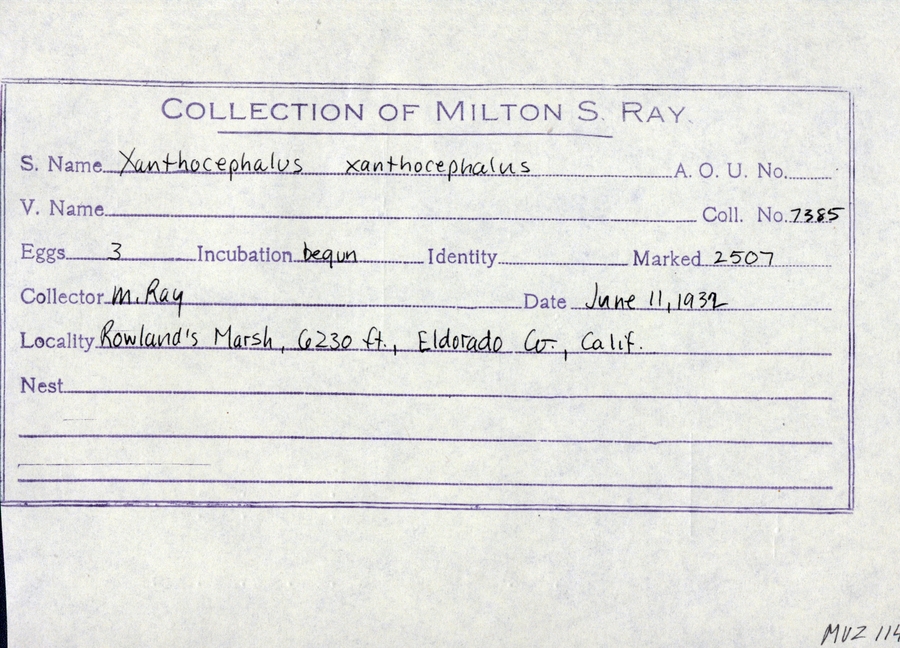 COLLECTION OF MILTON S. RAY.
S. Name Xanthocephalus xanthocephalus A. O. U. No.
V. Name Coll. No. 7385
Eggs 3 Incubation begun Identity Marked 2507
Collector M. Ray Date June 11, 1932
Locality Rowland's Marsh, 6230 ft., Eldorado Co., Calif.
Nest
MVZ 114